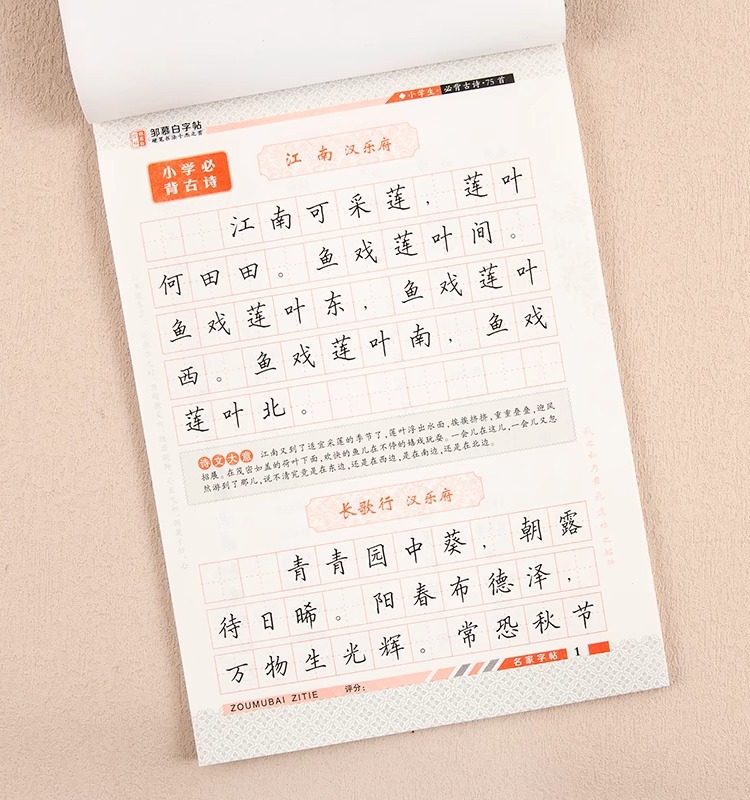 小学生·必背古诗·75首
邹慕白字帖
硬笔书法千杰之首
小学必
背古诗
江 南 汉乐府
江南可采莲，莲叶
何田田。鱼戏莲叶间。
鱼戏莲叶东，鱼戏莲叶
西。鱼戏莲叶南，鱼戏
莲叶北。
诗文大意 江南又到了适宜采莲的季节了，莲叶浮出水面，挨挨挤挤，重重叠叠，迎风
招展。在茂密如盖的荷叶下面，欢快的鱼儿在不停的嬉戏玩耍。一会儿在这儿，一会儿又忽
然游到了那儿，说不清究竟是在东边，还是在西边，是在南边，还是在北边。
长歌行 汉乐府
青青园中葵，朝露
待日晞。阳春布德泽，
万物生光辉。常恐秋节
名家字帖 1
ZOUMUBAI ZITIE 评分：